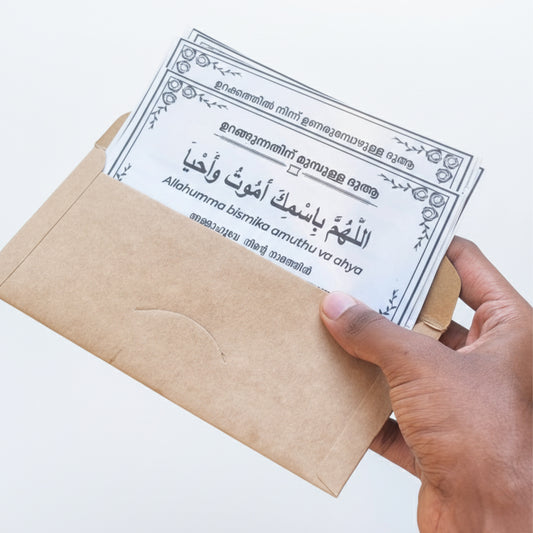 ഉറക്കത്തിൽ നിന്ന് ഉണരുമ്പോഴുള്ള ദുആ
ഉറങ്ങുന്നതിന് മുമ്പുള്ള ദുആ
اللَّهُمَّ بِاسْمِكَ أَمُوتُ وَأَحْيَا
Allahumma bismika amuthu va ahya
നിന്റെ നാമത്തിൽ